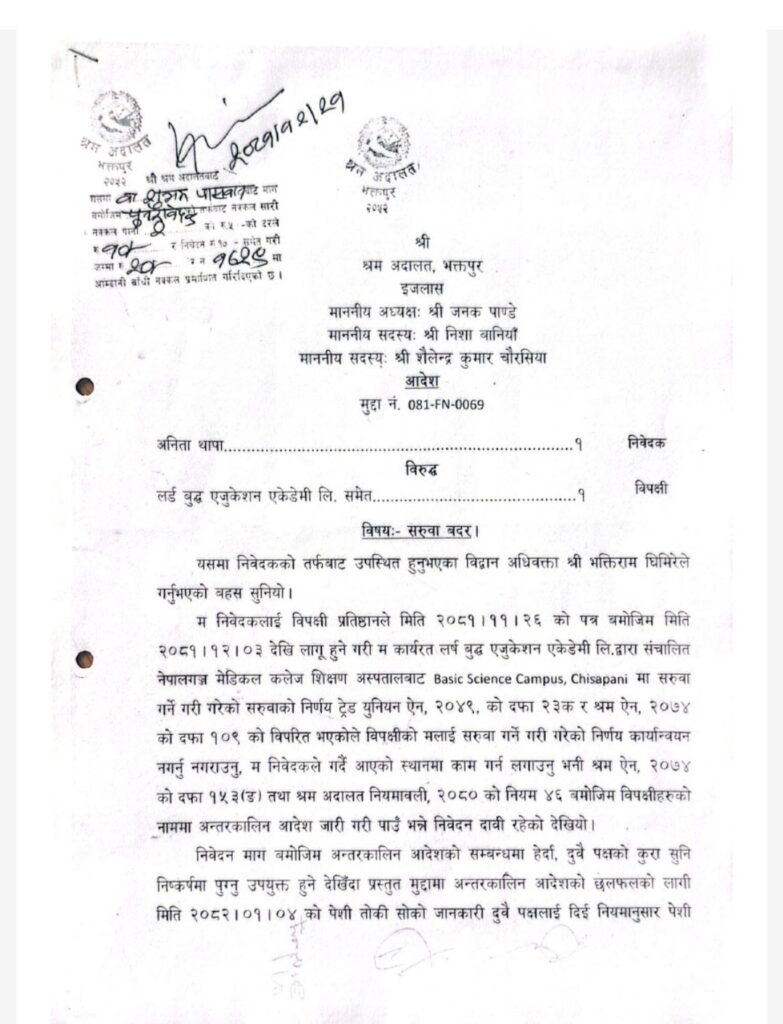 श्रम अदालत
भक्तपुर
२०५२
२०८१।१२।२१
श्रम अदालत
भक्तपुर
२०५२
श्री श्रम अदालतबाट
यसमा बाट माग
बमोजिम तर्फबाट नक्कल सारी
नक्कल पाना २ को रु.५ -को दरले
रु १०/- र निवेदन रु.१० - समेत गरी
जम्मा रु २०/- र न १६२९ मा
आम्दानी बाँधी नक्कल प्रमाणित गरिदिएको छ।
श्री
श्रम अदालत, भक्तपुर
इजलास
माननीय अध्यक्षः श्री जनक पाण्डे
माननीय सदस्यः श्री निशा वानियाँ
माननीय सदस्यः श्री शैलेन्द्र कुमार चौरसिया
आदेश
मुद्दा नं. 081-FN-0069
अनिता थापा..........................................................................१ निवेदक
विरुद्ध
लर्ड बुद्ध एजुकेशन एकेडेमी लि. समेत...........................................१ विपक्षी
विषयः- सरुवा बदर।
यसमा निवेदकको तर्फबाट उपस्थित हुनुभएका विद्वान अधिवक्ता श्री भक्तिराम घिमिरेले
गर्नुभएको बहस सुनियो।
म निवेदकलाई विपक्षी प्रतिष्ठानले मिति २०८१।११।२६ को पत्र बमोजिम मिति
२०८१।१२।०३ देखि लागू हुने गरी म कार्यरत लर्ष बुद्ध एजुकेशन एकेडेमी लि.द्वारा संचालित
नेपालगञ्ज मेडिकल कलेज शिक्षण अस्पतालबाट Basic Science Campus, Chisapani मा सरुवा
गर्ने गरी गरेको सरुवाको निर्णय ट्रेड युनियन ऐन, २०४९, को दफा २३क र श्रम ऐन, २०७४
को दफा १०९ को विपरित भएकोले विपक्षीको मलाई सरुवा गर्ने गरी गरेको निर्णय कार्यान्वयन
नगर्नु नगराउनु, म निवेदकले गर्दै आएको स्थानमा काम गर्न लगाउनु भनी श्रम ऐन, २०७४
को दफा १५३(ड) तथा श्रम अदालत नियमावली, २०८० को नियम ४६ बमोजिम विपक्षीहरुको
नाममा अन्तरकालिन आदेश जारी गरी पाउँ भन्ने निवेदन दावी रहेको देखियो।
निवेदन माग बमोजिम अन्तरकालिन आदेशको सम्बन्धमा हेर्दा, दुवै पक्षको कुरा सुनि
निष्कर्षमा पुग्नु उपयुक्त हुने देखिँदा प्रस्तुत मुद्दामा अन्तरकालिन आदेशको छलफलको लागी
मिति २०८२।०१।०४ को पेशी तोकी सोको जानकारी दुवै पक्षलाई दिई नियमानुसार पेशी